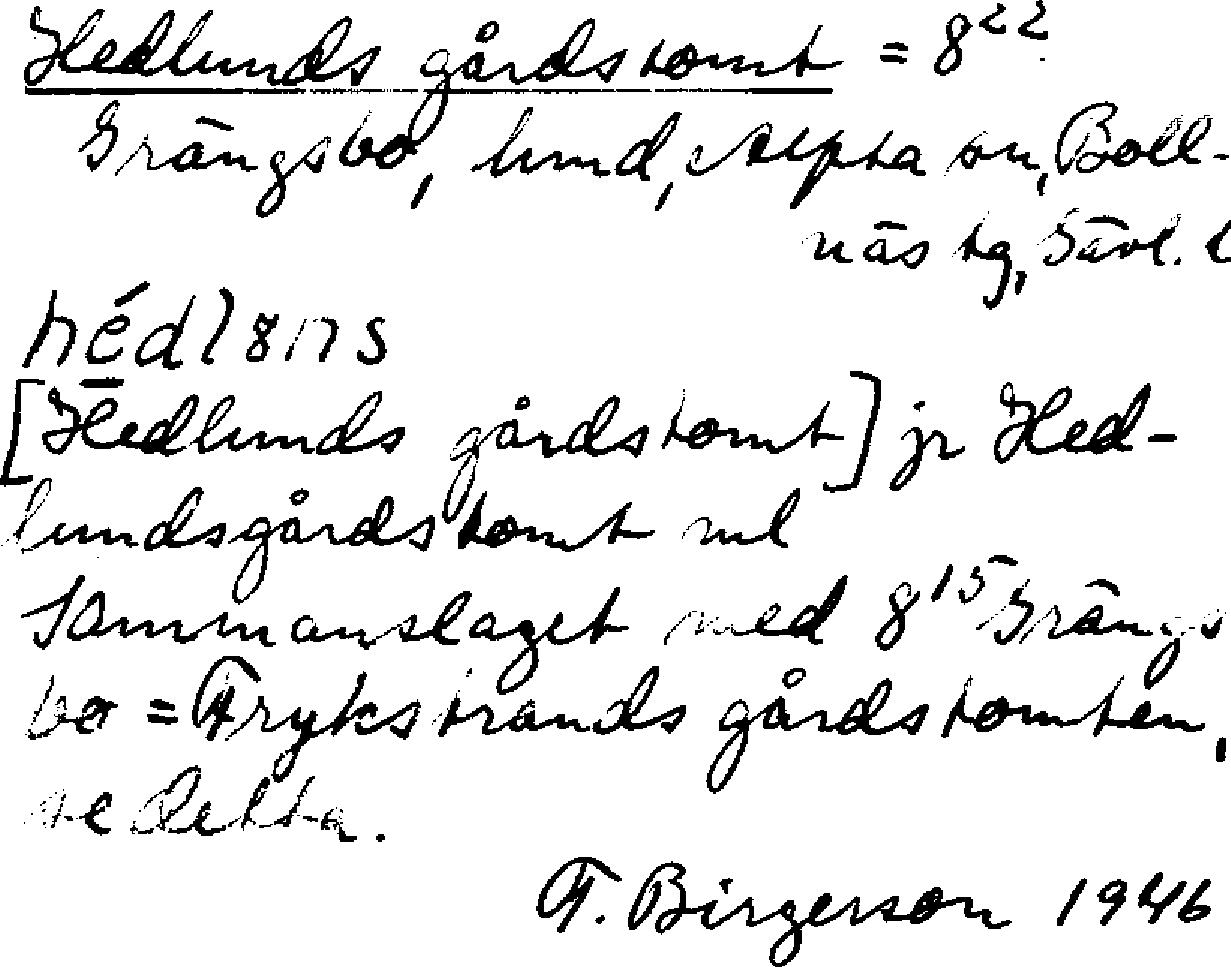 Hedlunds gårdstomt = 8²²
Grängsbo, by, Alfta sn, Boll-
näs tg, Gävl. l
hédl8ns
[Hedlunds gårdstomt] jr Hed-
lundsgårdstomt ml
Sammanslaget med 8¹⁵ Grängs
bo = Frykstrands gårdstomten,
se detta.
F. Birgerson 1946